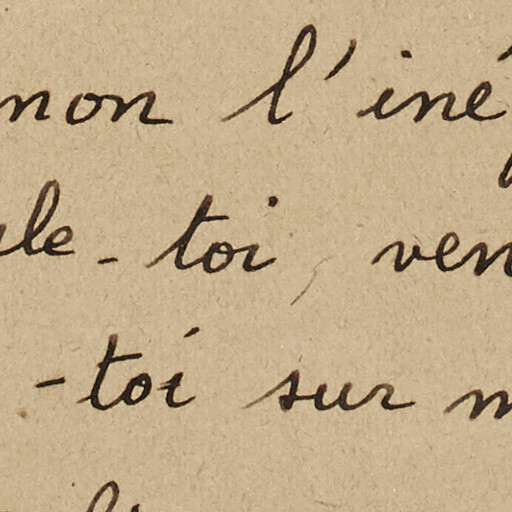 non l'iné
ule-toi, ven
-toi sur m